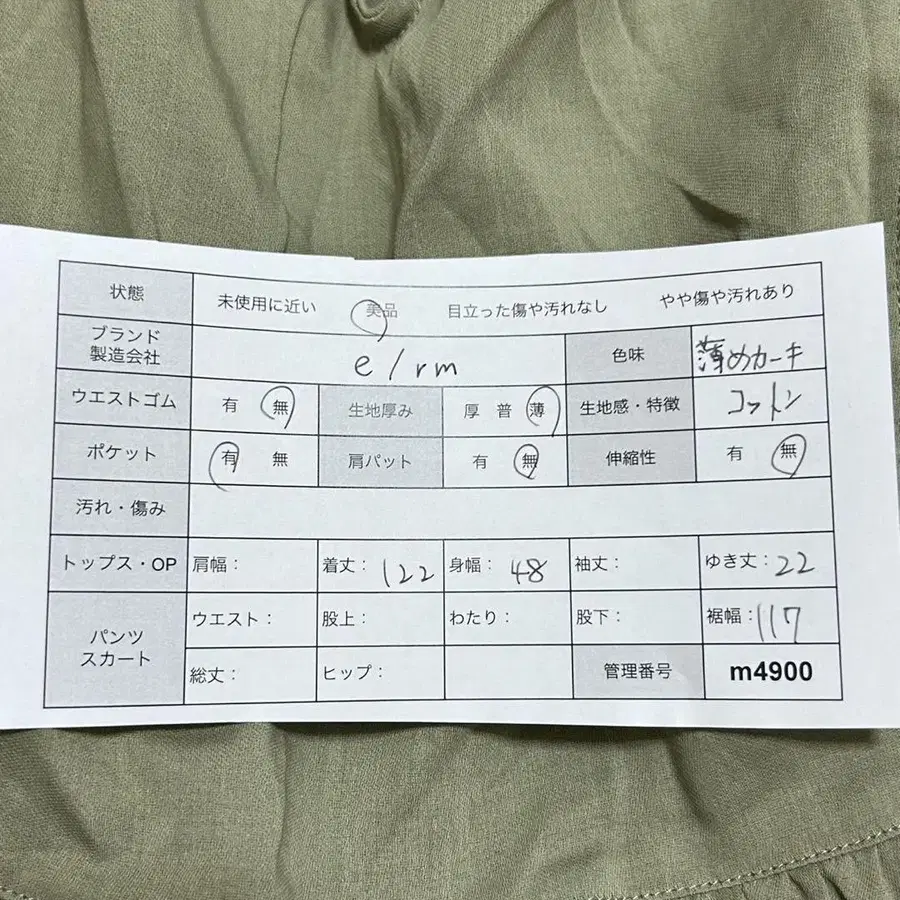 状態 未使用に近い 美品 目立った傷や汚れなし やや傷や汚れあり
ブランド
製造会社 e/rm 色味 薄めカーキ
ウエストゴム 有 無 生地厚み 厚 普 薄 生地感・特徴 コットン
ポケット 有 無 肩パット 有 無 伸縮性 有 無
汚れ・傷み
トップス・OP 肩幅： 着丈：122 身幅：48 袖丈： ゆき丈：22
パンツ
スカート ウエスト： 股上： わたり： 股下： 裾幅：117
総丈： ヒップ： 管理番号 m4900